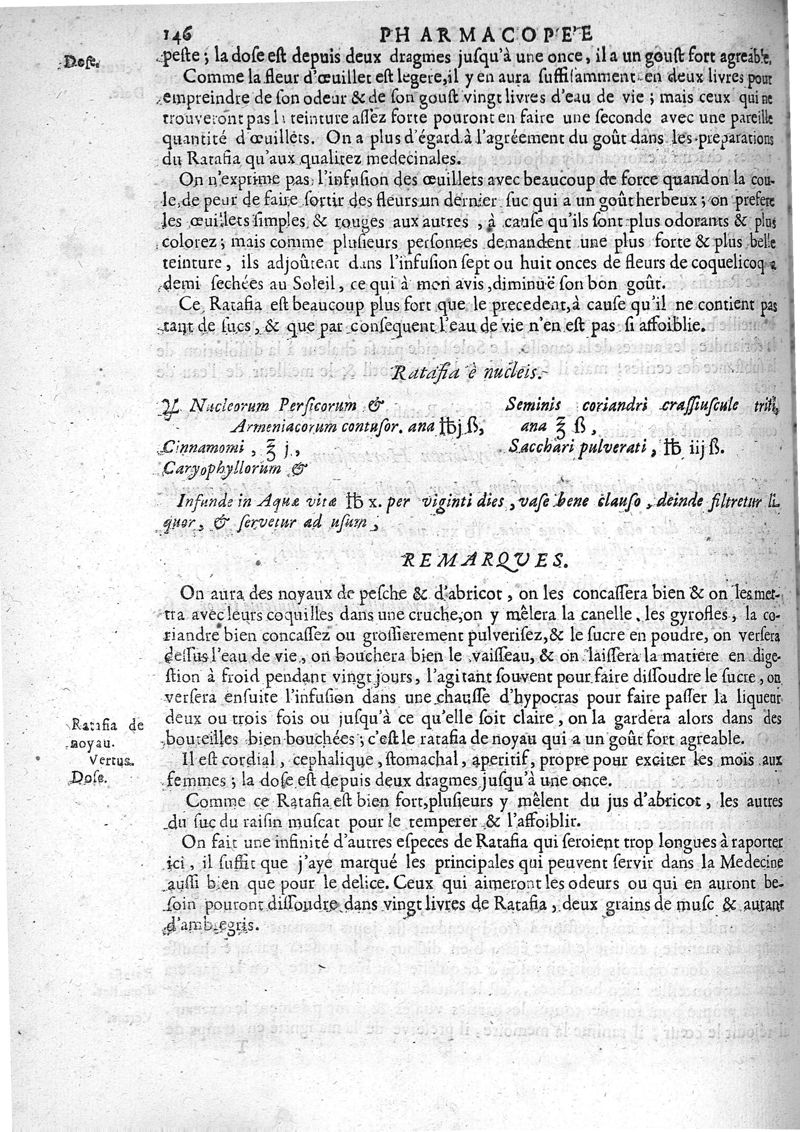 146 PHARMACOPÉE
Dose.
peste; la dose est depuis deux dragmes jusqu'à une once, il a un goust fort agreable.
Comme la fleur d'œuillet est legere, il y en aura suffisamment en deux livres pour
empreindre de son odeur & de son goust vingt livres d'eau de vie; mais ceux qui ne
trouveront pas la teinture assez forte pouront en faire une seconde avec une pareille
quantité d'œuillets. On a plus d'égard à l'agréement du goût dans les preparations
du Ratafia qu'aux qualitez medecinales.
On n'exprime pas l'infusion des œuillets avec beaucoup de force quand on la cou-
le, de peur de faire sortir des fleurs un dernier suc qui a un goût herbeux; on prefere
les œuillets simples & rouges aux autres, à cause qu'ils sont plus odorants & plus
colorez; mais comme plusieurs personnes demandent une plus forte & plus belle
teinture, ils adjoûtent dans l'infusion sept ou huit onces de fleurs de coquelicoq a
demi sechées au Soleil, ce qui à mon avis, diminuë son bon goût.
Ce Ratafia est beaucoup plus fort que le precedent, à cause qu'il ne contient pas
tant de sucs, & que par consequent l'eau de vie n'en est pas si affoiblie.
Ratafia è nucleis.
℞ Nucleorum Persicorum &
Armeniacorum contusor. ana ℔j ß,
Cinnamomi, ℥ j,
Caryophyllorum &
Seminis coriandri crassiuscule triti,
ana ℥ ß,
Sacchari pulverati, ℔ iij ß.
Infunde in Aquæ vitæ ℔ x. per viginti dies, vase bene clauso, deinde filtretur li
quor, & servetur ad usum,
REMARQUES.
On aura des noyaux de pesche & d'abricot, on les concassera bien & on les met-
tra avec leurs coquilles dans une cruche, on y mêlera la canelle, les gyrofles, la co-
riandre bien concassez ou grossierement pulverisez, & le sucre en poudre, on versera
dessus l'eau de vie, on bouchera bien le vaisseau, & on laissera la matiere en dige-
stion à froid pendant vingt jours, l'agitant souvent pour faire dissoudre le sucre, on
versera ensuite l'infusion dans une chausse d'hypocras pour faire passer la liqueur
deux ou trois fois ou jusqu'à ce qu'elle soit claire, on la gardera alors dans des
bouteilles bien bouchées; c'est le ratafia de noyau qui a un goût fort agreable.
Ratafia de
noyau.
Vertus.
Dose.
Il est cordial, cephalique, stomachal, aperitif, propre pour exciter les mois aux
femmes; la dose est depuis deux dragmes jusqu'à une once.
Comme ce Ratafia est bien fort, plusieurs y mêlent du jus d'abricot, les autres
du suc du raisin muscat pour le temperer & l'affoiblir.
On fait une infinité d'autres especes de Ratafia qui seroient trop longues à raporter
ici, il suffit que j'aye marqué les principales qui peuvent servir dans la Medecine
aussi bien que pour le delice. Ceux qui aimeront les odeurs ou qui en auront be-
soin pouront dissoudre dans vingt livres de Ratafia, deux grains de musc & autant
d'ambregris.